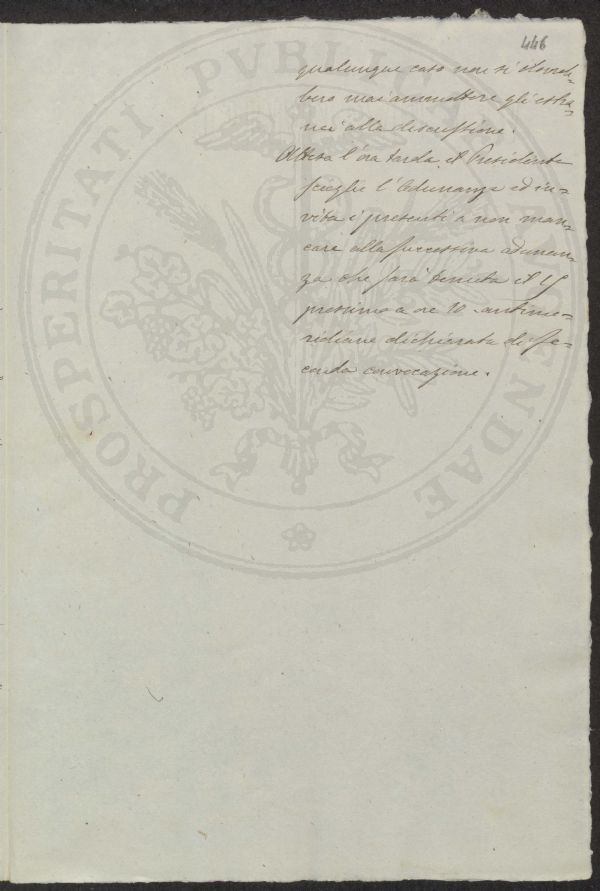 446
qualunque caso non si dovreb-
bero mai ammettere gli estra-
nei alla discussione.
Attesa l'ora tarda il Presidente
scioglie l'Adunanza ed in-
vita i presenti a non man-
care alla successiva adunan-
za che sarà tenuta il 15
prossimo a ore 10 antime-
ridiane dichiarata di se-
conda convocazione.
PROSPERITATI PVBLICAE AVGENDAE